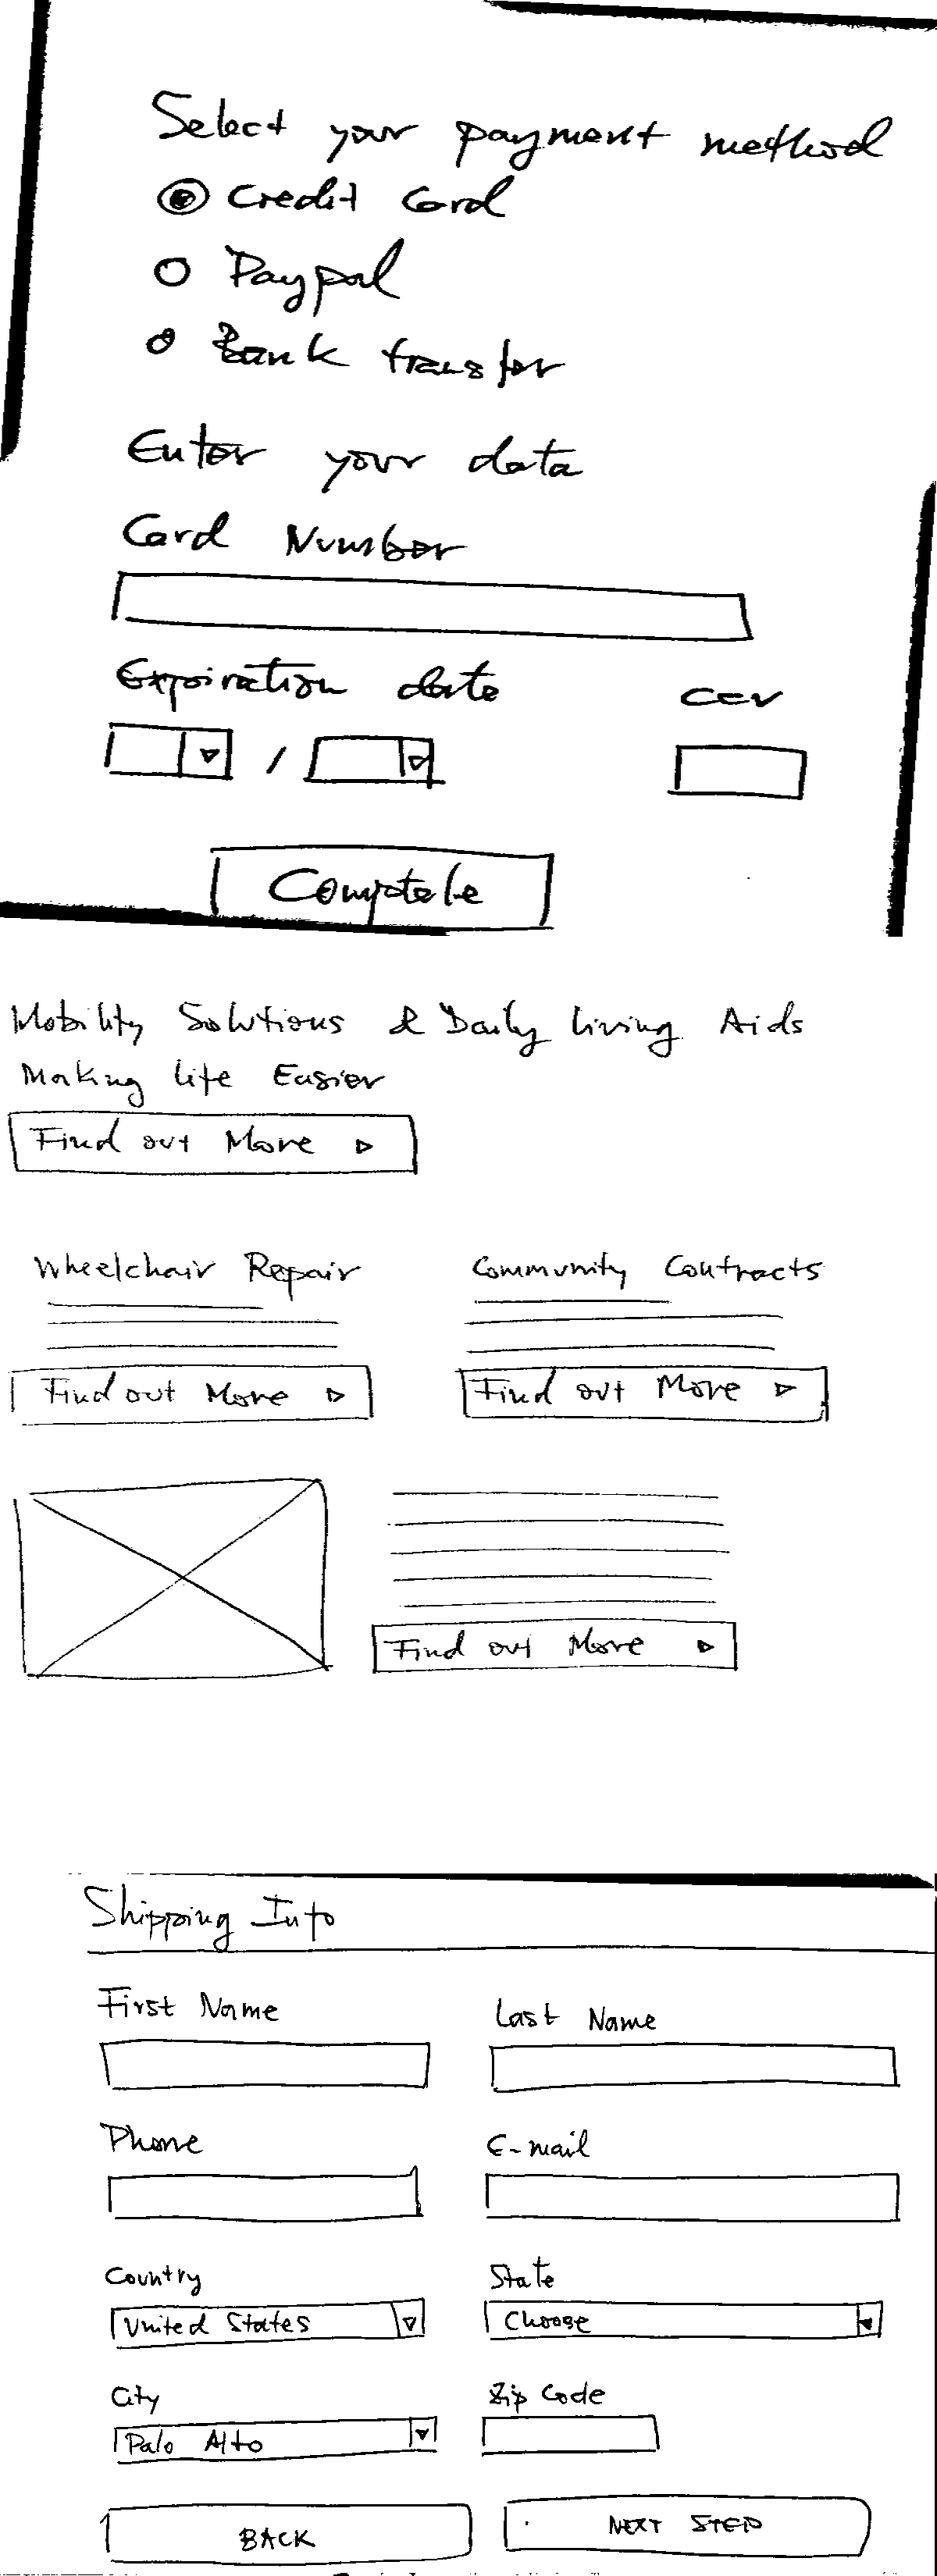 Select your payment method
Credit Card
Paypal
Bank transfer
Enter your data
Card Number
Expiration date CCV
/
Complete
Mobility Solutions & Daily Living Aids
Making Life Easier
Find out More
Wheelchair Repair Community Contracts
Find out More Find out More
Find out More
Shipping Info
First Name Last Name
Phone E-mail
Country State
United States Choose
City Zip Code
Palo Alto
BACK NEXT STEP